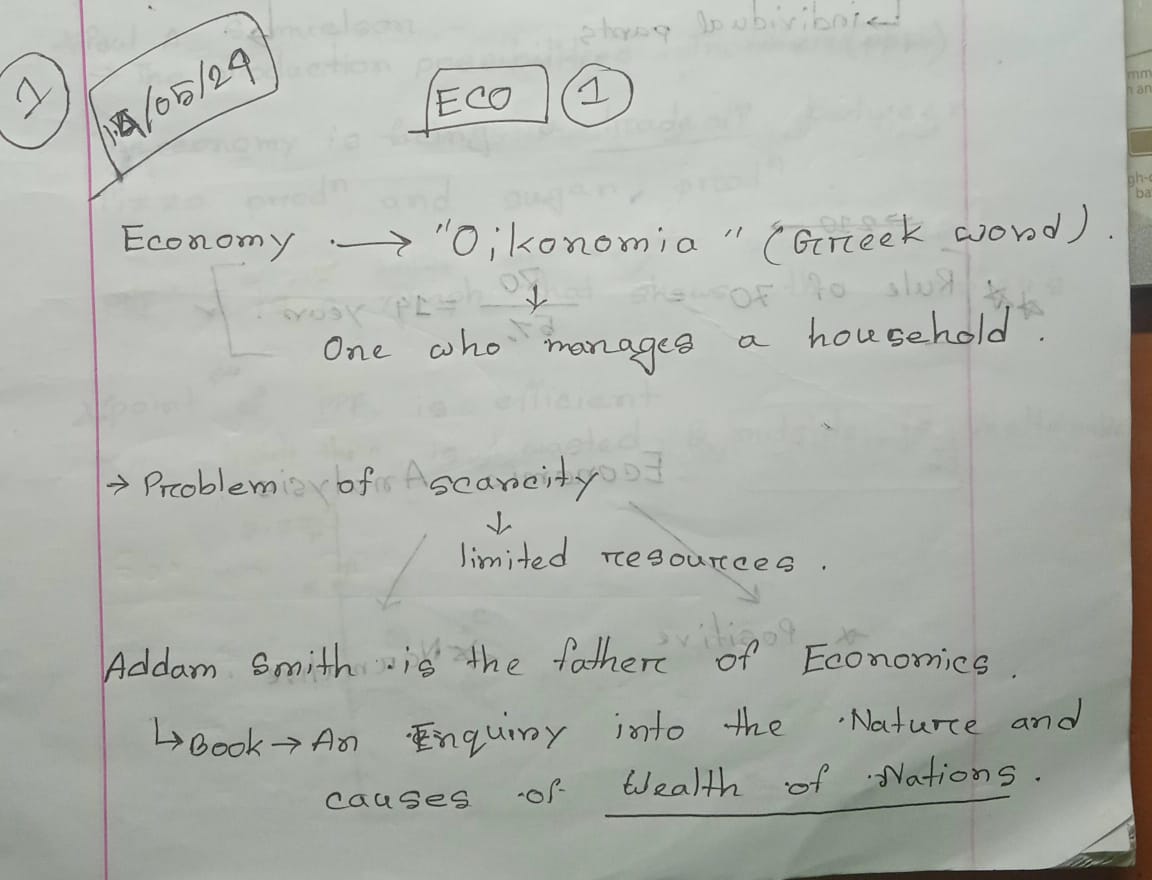 1
/05/24
ECO 1
Economy → "Oikonomia" (Greek word).
↓
One who manages a household.
→ Problem of scarcity
↓
limited resources.
Addam Smith is the father of Economics.
↳ Book → An Enquiry into the Nature and
causes of Wealth of Nations.